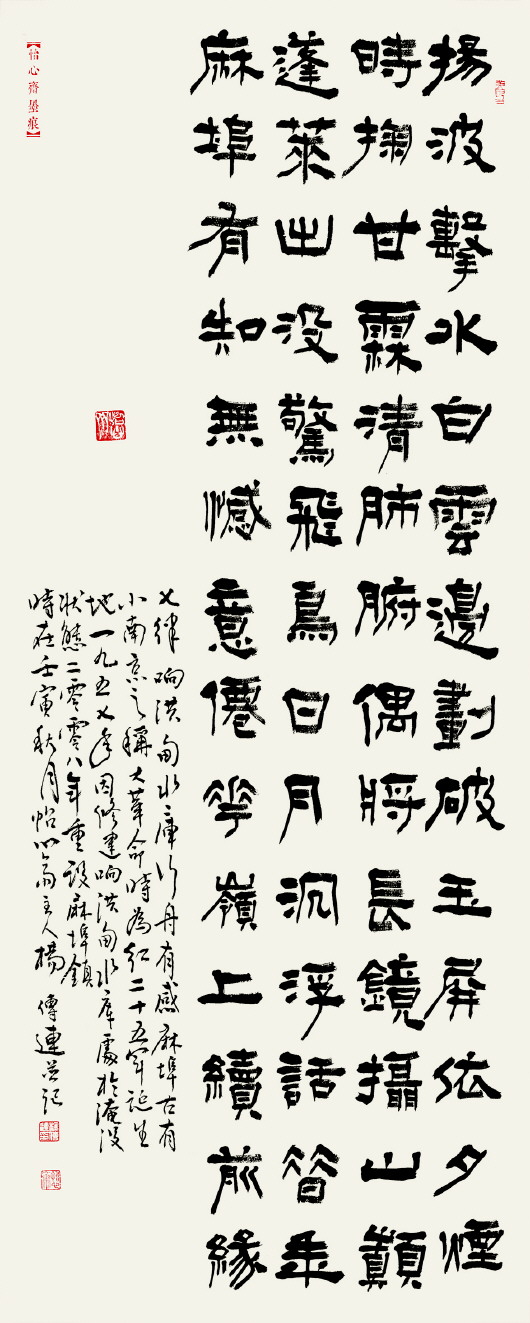 揚波擊水白雲邊劃破玉屏依夕煙
時掬甘霖清肺腑偶將長鏡攝山顛
蓬萊出没驚飛鳥日月沉浮話昔年
麻埠有知無憾意僊花嶺上續前緣
七律响洪甸水庫行舟有感麻埠古有
小南京之稱大革命時為紅二十五軍誕生
地一九五七年因修建响洪甸水庫處於淹没
狀態二零零八年重設麻埠鎮
時在壬寅秋月怡心齋主人楊傳連并記
【怡心齋墨痕】